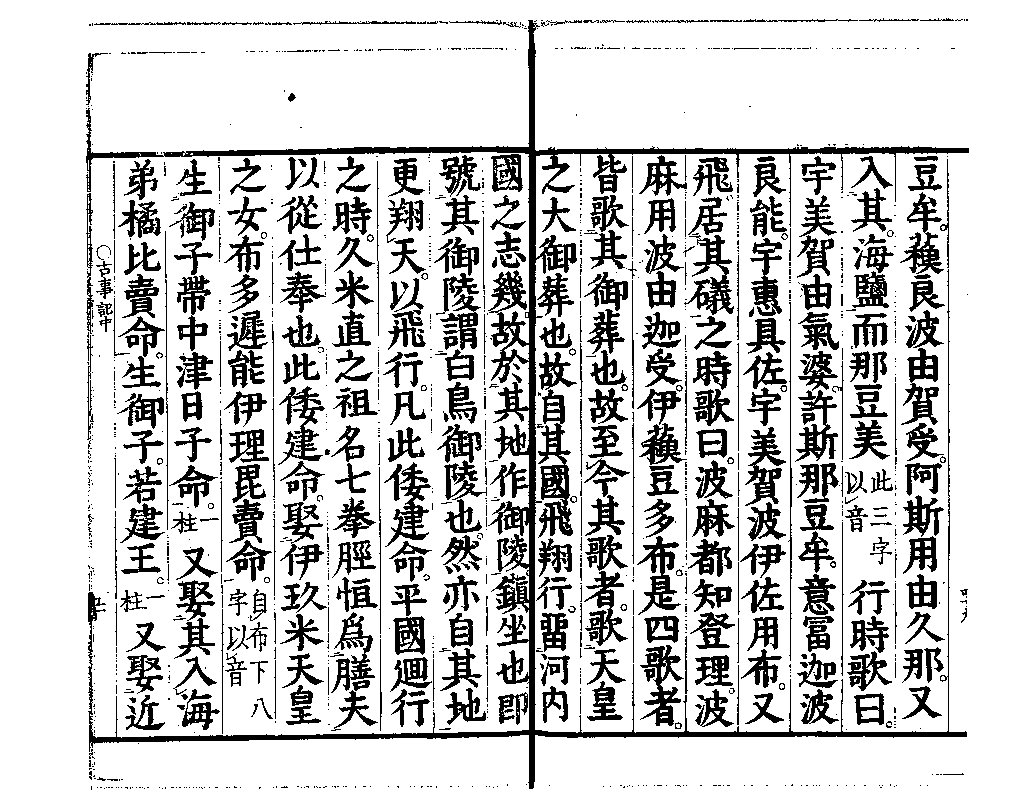 豆牟。蘓良波由賀受。阿斯用由久那。又
入其。海鹽而那豆美此三字以音行時歌曰。
宇美賀由氣婆。許斯那豆牟。意富迦波
良能。宇惠具佐。宇美賀波伊佐用布。又
飛居其礒之時歌曰。波麻都知登理。波
麻用波由迦受。伊蘓豆多布。是四歌者。
皆歌其御葬也。故至今其歌者。歌天皇
之大御葬也。故自其國。飛翔行。留河内
國之志幾。故於其地作御陵鎭坐也即
號其御陵謂白鳥御陵也。然亦自其地
更翔天。以飛行。凡此倭建命。平國廻行
之時。久米直之祖名七拳脛恒爲膳夫
以從仕奉也。此倭建命。娶伊玖米天皇
之女。布多遲能伊理毘賣命。自布下八字以音
生御子帶中津日子命。一柱又娶其入海
弟橘比賣命。生御子。若建王。一柱又娶近
○古事記中